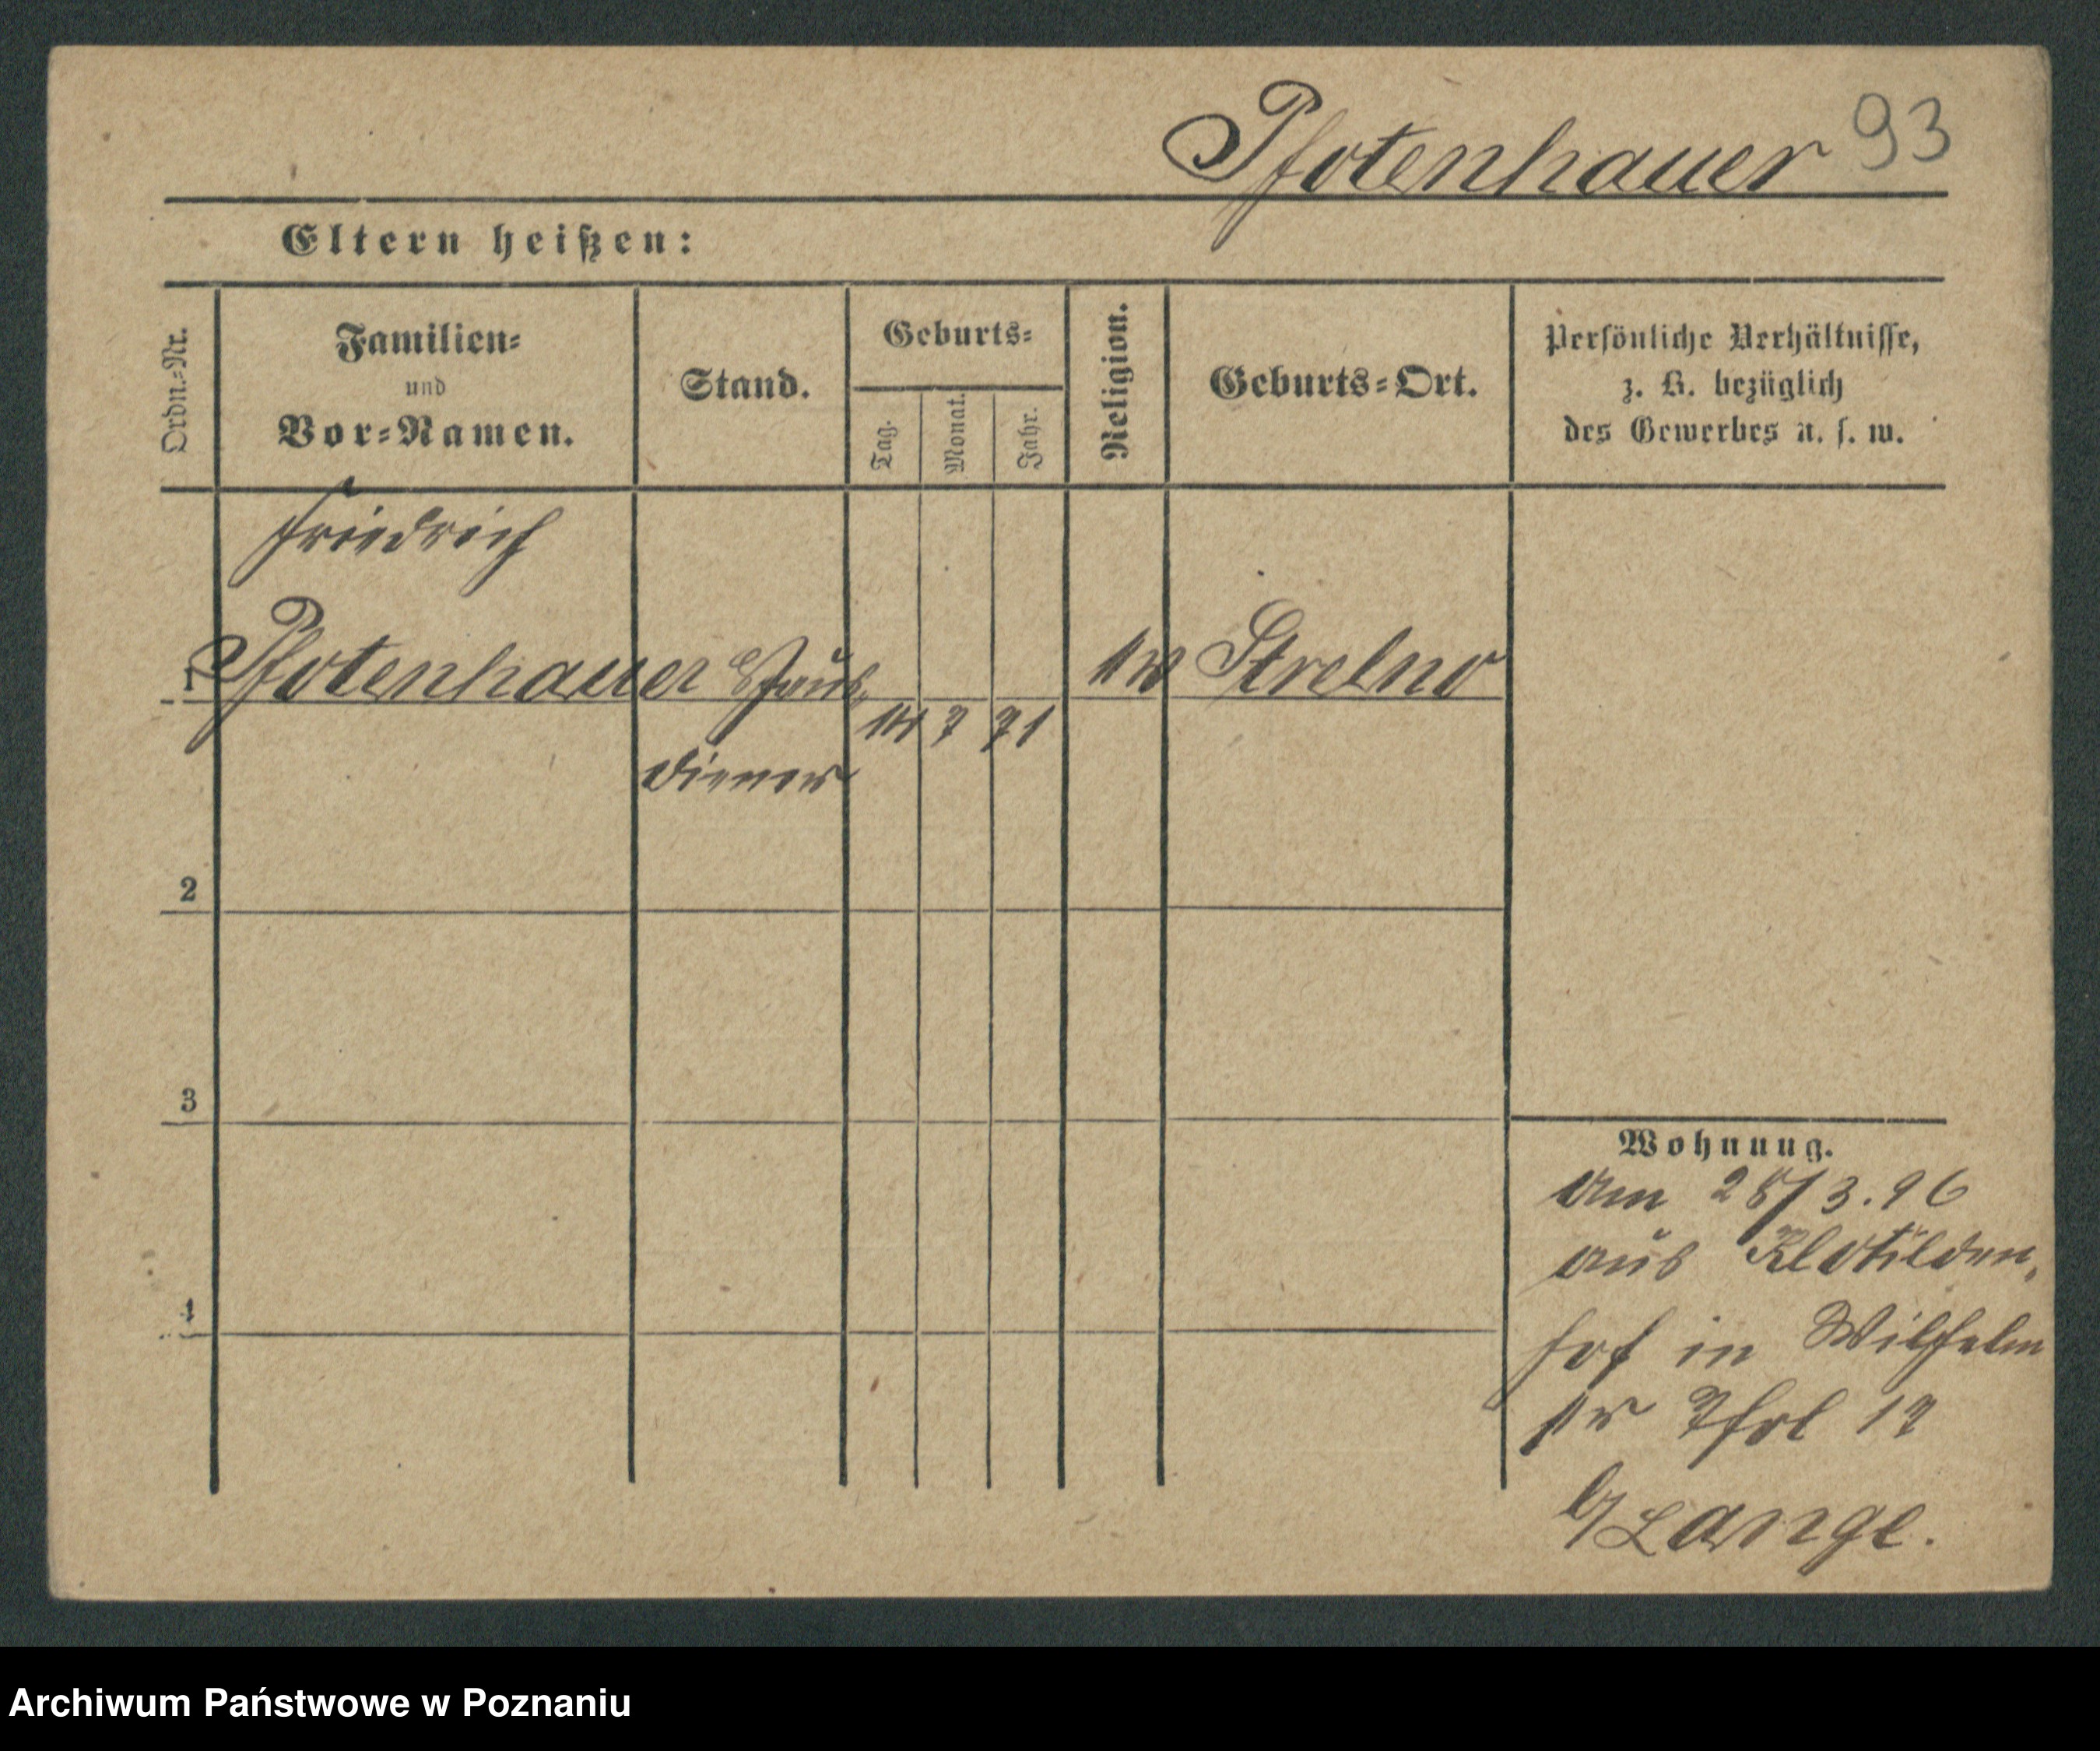 Pfotenhauer 93
Eltern heißen:
Ordn.-Nr.
Familien-
und
Vor-Namen.
Stand.
Geburts-
Tag.
Monat.
Jahr.
Religion.
Geburts-Ort.
Persönliche Verhältnisse,
z. B. bezüglich
des Gewerbes u. s. w.
Friedrich
1 Pfotenhauer Haus- Strelno
7 71
diener
2
3
4
Wohnung.
am 28/3.96
aus Klotilden-
hof in Wilhelm
17
b/ Lange.
Archiwum Państwowe w Poznaniu